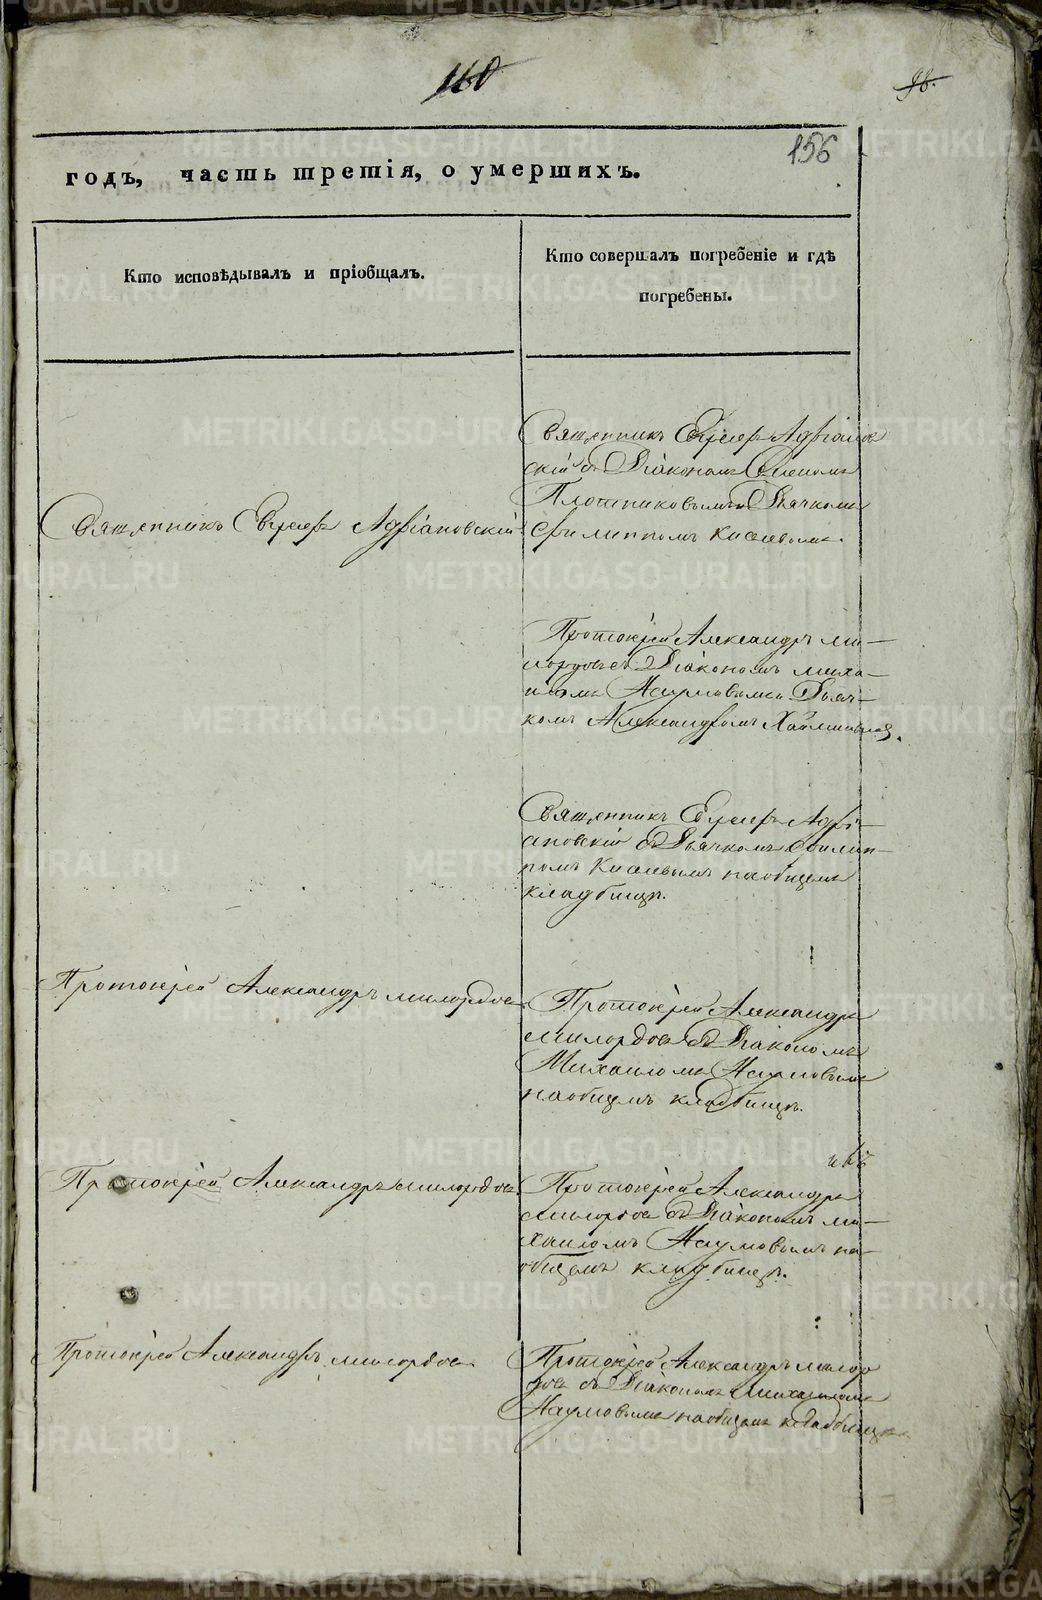 160
98.
156
годъ, часть третія, о умершихъ.
Кто исповѣдывалъ и пріобщалъ.
Кто совершалъ погребеніе и гдѣ
погребены.
Священникъ Адріанов
скій съ Діакономъ
Плотниковымъ и Дьячкомъ
Филиппомъ Киселевымъ.
Священникъ Адріановскій
Протоіерей Александръ Ми-
лордовъ съ Діакономъ Миха-
иломъ Наумовымъ и Дьяч-
комъ Александромъ
Священникъ Адрі-
ановскій съ Дьячкомъ Филип-
помъ Киселевымъ на общемъ
кладбищѣ.
Протоіерей Александръ Милордовъ
Протоіерей Александръ
Милордовъ съ Діакономъ
Михаиломъ Наумовымъ
на общемъ кладбищѣ.
Протоіерей Александръ Милордовъ
Протоіерей Александръ
Милордовъ съ Діакономъ Ми-
хаиломъ Наумовымъ на-
общемъ кладбищѣ.
Протоіерей Александръ Милордовъ
Протоіерей Александръ Милор
довъ съ Діакономъ Михаиломъ
Наумовымъ на общемъ кладбищѣ
METRIKI.GASO-URAL.RU